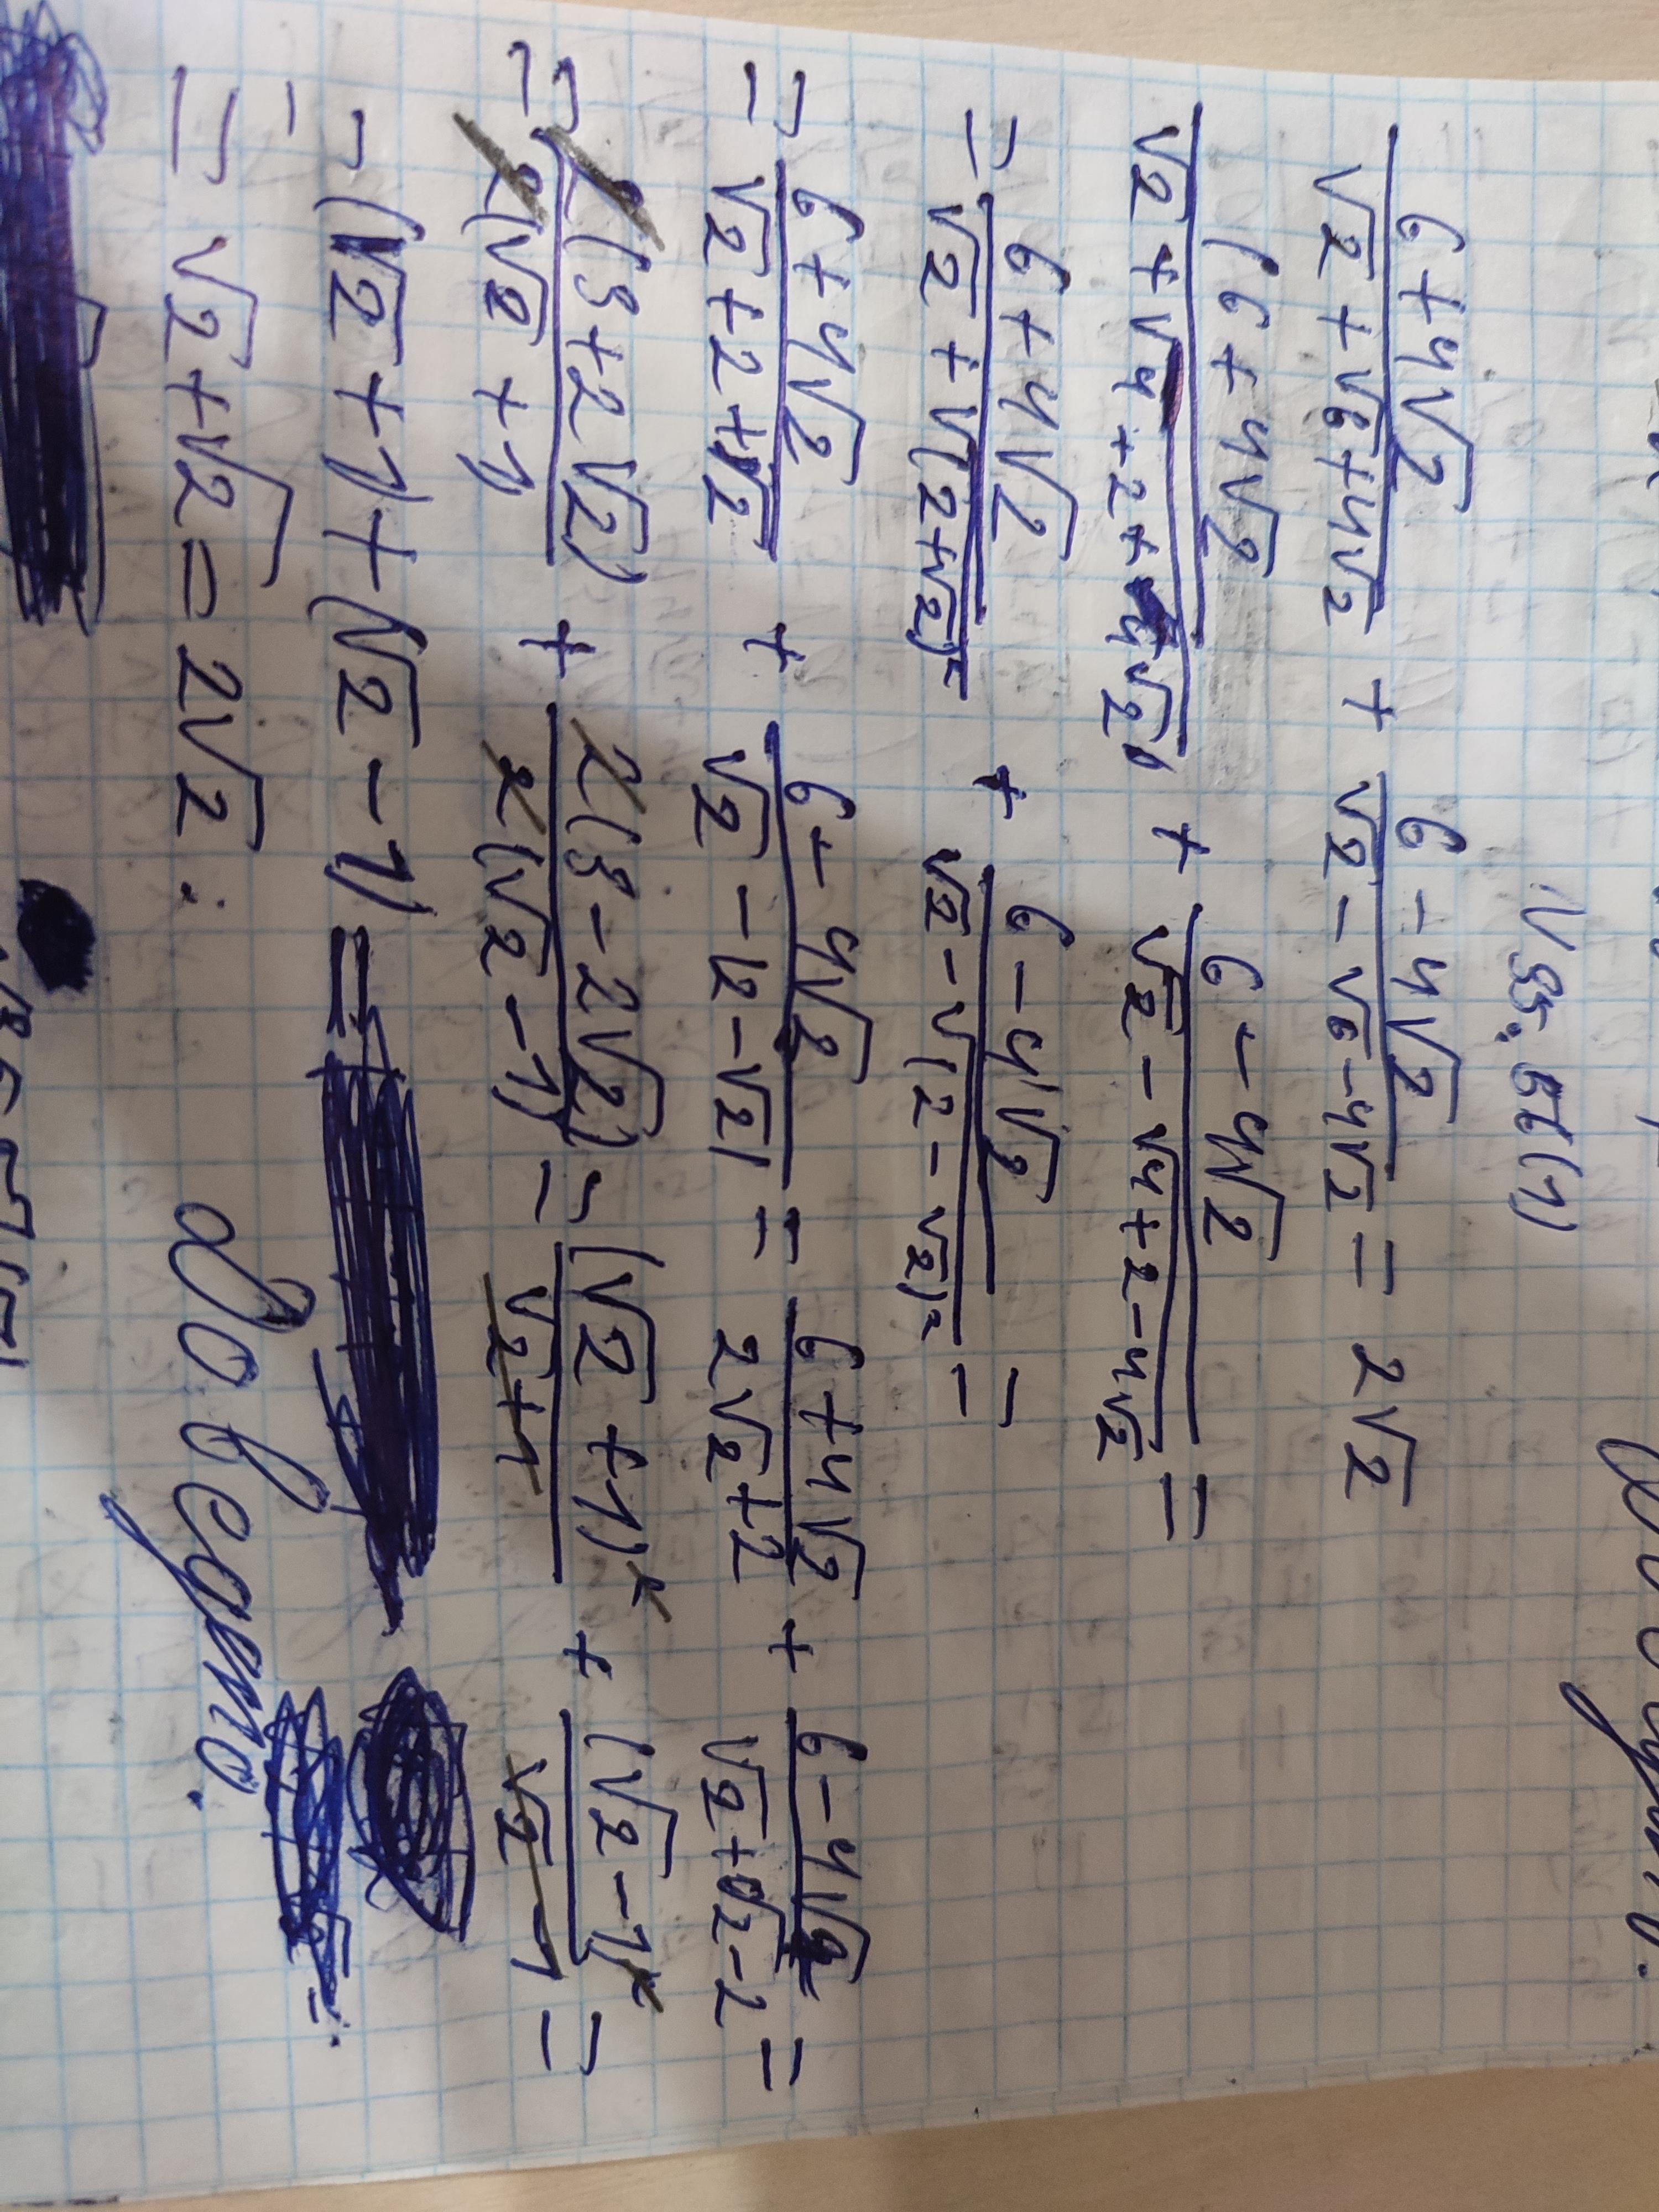 N 95. Б2(1)
(6+4√2)/(√2+√(6+4√2)) + (6-4√2)/(√2-√(6-4√2)) = 2√2
(6+4√2)/(√2+√(4+2+4√2)) + (6-4√2)/(√2-√(4+2-4√2)) =
= (6+4√2)/(√2+√((2+√2)²)) + (6-4√2)/(√2-√((2-√2)²)) =
= (6+4√2)/(√2+2+√2) + (6-4√2)/(√2-|2-√2|) = (6+4√2)/(2√2+2) + (6-4√2)/(√2+√2-2) =
= 2(3+2√2)/2(√2+1) + 2(3-2√2)/2(√2-1) = (√2+1)²/(√2+1) + (√2-1)²/(√2-1) =
= (√2+1)+(√2-1) =
= √2+√2=2√2.
Доведено.